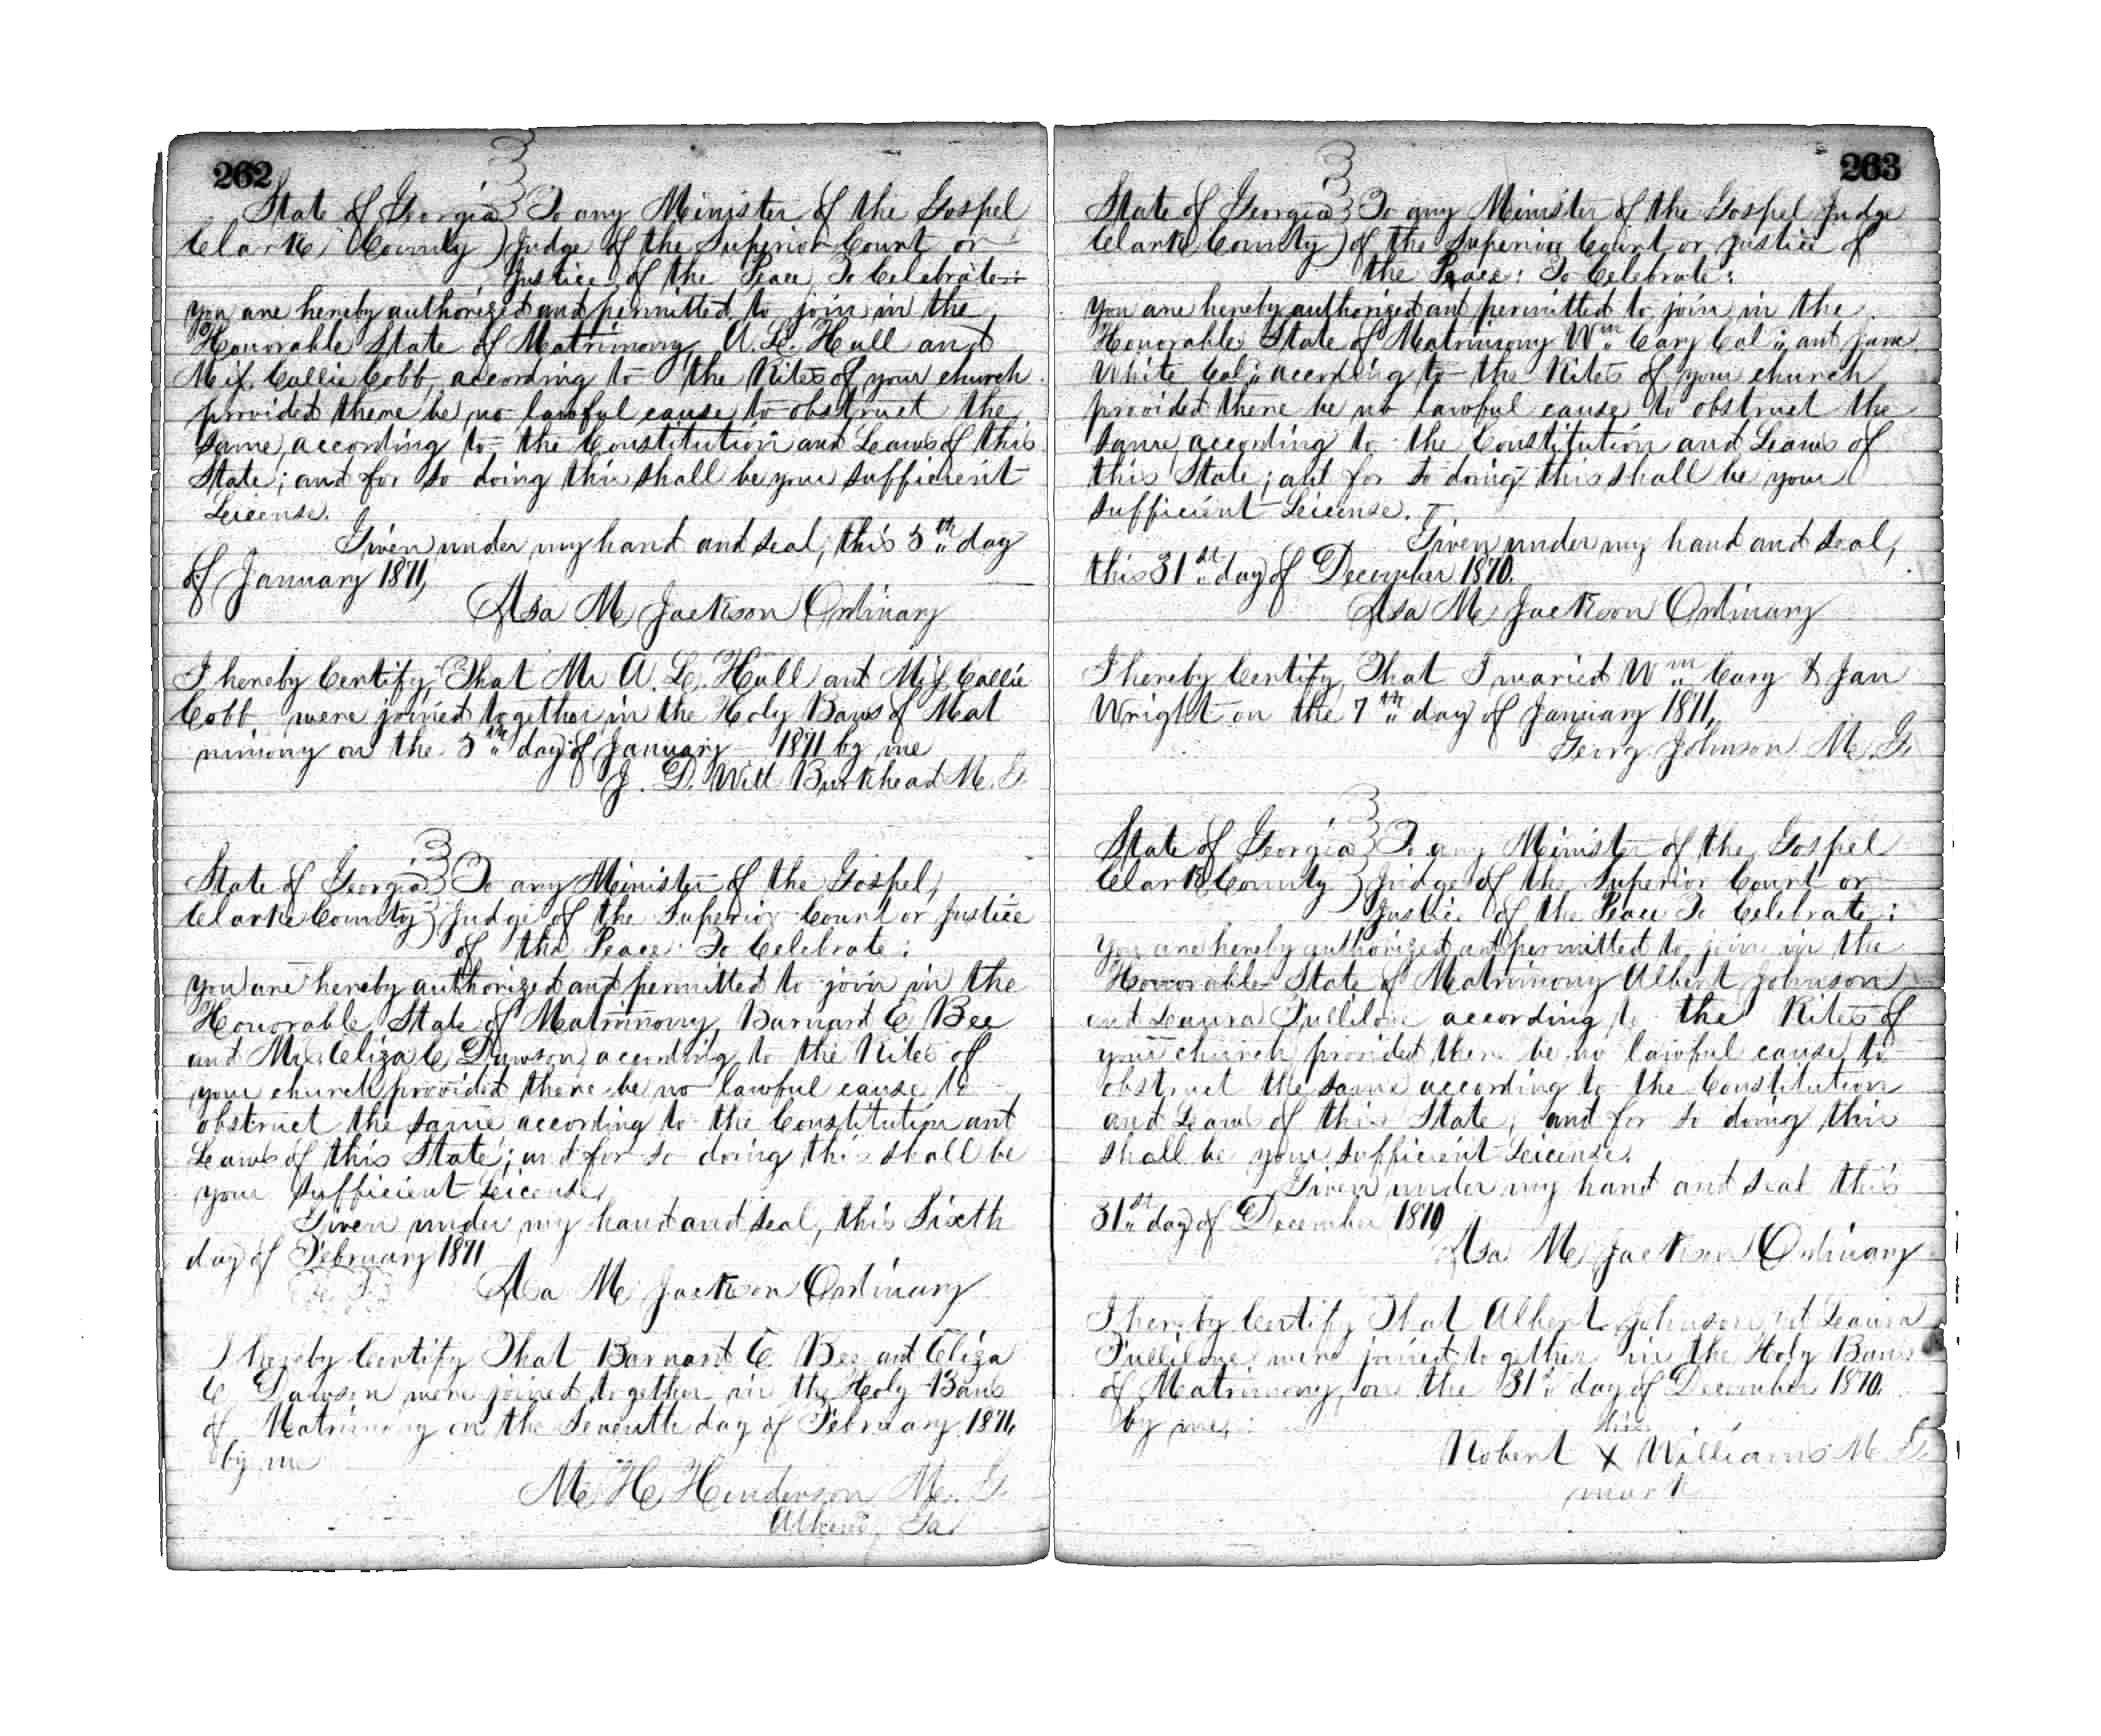 262
State of Georgia } To any Minister of the Gospel
Clarke County } Judge of the Superior Court or
Justice of the Peace To Celebrate:
you are hereby authorized and permitted to join in the
Honorable State of Matrimony A. L. Hull and
Miss Callie Cobb, according to the Rites of your church
provided there be no lawful cause to obstruct the
same, according to the Constitution and Laws of this
State; and for so doing this shall be your sufficient
License.
Given under my hand and seal, this 5th day
of January 1871,
Asa M Jackson Ordinary
I hereby Certify, That Mr A. L. Hull and Miss Callie
Cobb were joined together in the Holy Bans of Mat
rimony on the 5th day of January 1871 by me
J. D. Will Burkhead M. G
State of Georgia } To any Minister of the Gospel,
Clarke County } Judge of the Superior Court or Justice
of the Peace: To Celebrate:
you are hereby authorized and permitted to join in the
Honorable State of Matrimony, Barnard E Bee
and Mrs Eliza C Dawson according to the Rites of
your church provided there be no lawful cause to
obstruct the same according to the Constitution and
Laws of this State; and for so doing this shall be
your sufficient License,
Given under my hand and seal, this Sixth
day of February 1871
Asa M Jackson Ordinary
I hereby Certify That Barnard E. Bee and Eliza
C Dawson were joined together in the Holy Bans
of Matrimony on the Seventh day of February 1871,
by me
M H Henderson M. G
Athens, Ga
263
State of Georgia } To any Minister of the Gospel Judge
Clarke County } of the Superior Court or Justice of
the Peace: To Celebrate:
you are hereby authorized and permitted to join in the
Honorable State of Matrimony Wm Cary Col and Jane
White Col according to the Rites of your church
provided there be no lawful cause to obstruct the
same, according to the Constitution and Laws of
this State; and for so doing this shall be your
sufficient License.
Given under my hand and seal,
this 31st day of December 1870.
Asa M Jackson Ordinary
I hereby Certify, That I maried Wm Cary & Jan
Wright on the 7th day of January 1871,
Georg Johnson M. G
State of Georgia } To any Minister of the Gospel
Clarke County } Judge of the Superior Court or
Justice of the Peace To Celebrate:
You are hereby authorized and permitted to join in the
Honorable State of Matrimony Albert Johnson
and Laura Fullilove according to the Rites of
your church, provided there be no lawful cause to
obstruct the same according to the Constitution
and Laws of this State, and for so doing this
shall be your sufficient License.
Given under my hand and seal this
31st day of December 1870,
Asa M Jackson Ordinary
I hereby Certify That Albert Johnson and Laura
Fullilove were joined together in the Holy Bans
of Matrimony, on the 31st day of December 1870.
by me,
his
Robert X Williams M. G.
mark